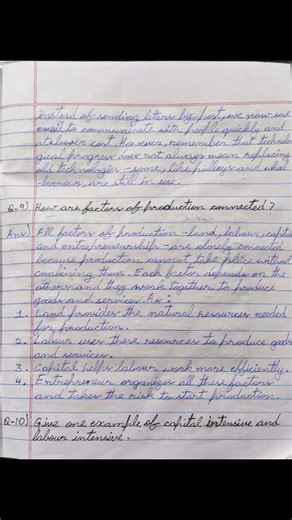 instead of sending letters by post, we now use
email to communicate with people quickly and
at lower cost. However, remember that technolo
gical progress does not always mean replacing
old technologies - some, like pulleys and wheel
-barrow, are still in use.
Q-9) How are factors of production connected?
Ans) All factors of production - land, labour, capital
and entrepreneurship - are closely connected
because production cannot take place without
combining them. Each factor depends on the
others and they work together to produce
goods and services. As :
1. Land provides the natural resources needed
for production.
2. Labour uses these resources to produce goods
and services.
3. Capital helps labour work more efficiently.
4. Entrepreneur organizes all these factors
and takes the risk to start production.
Q-10) Give one example of capital intensive and
labour intensive.